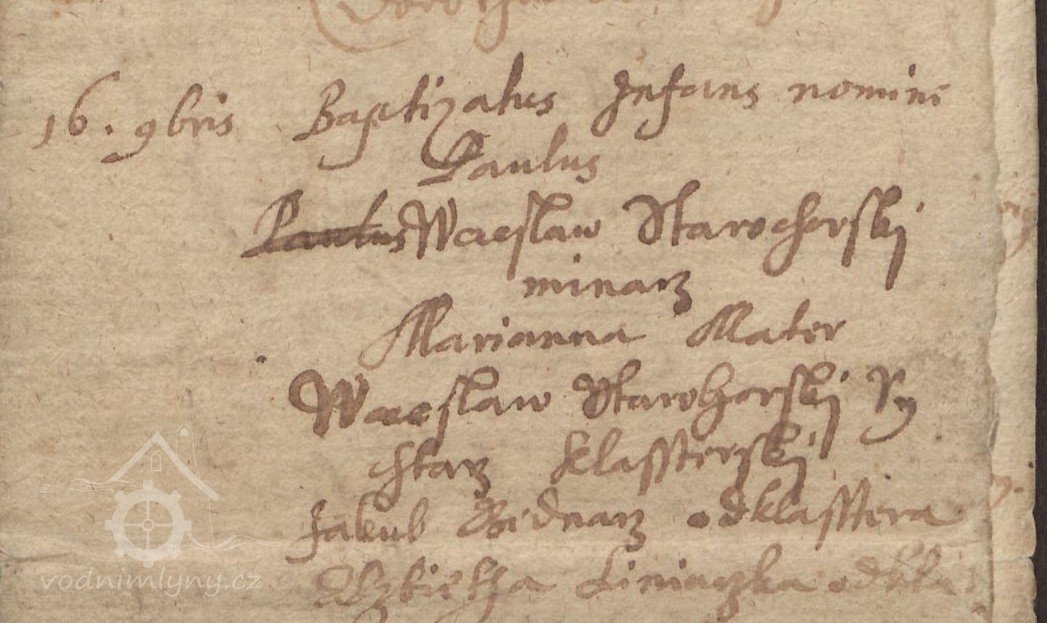 16. 9bris Baptizatus Infans nomine
Paulus
Paulus Wacslaw Starochorskj
minarz
Marianna Mater
Wacslaw Starohorskj Ry
chtarz klassterskj
Jakub Bednarz od klasstera
Alzbietha od kla
vodnimlyny.cz